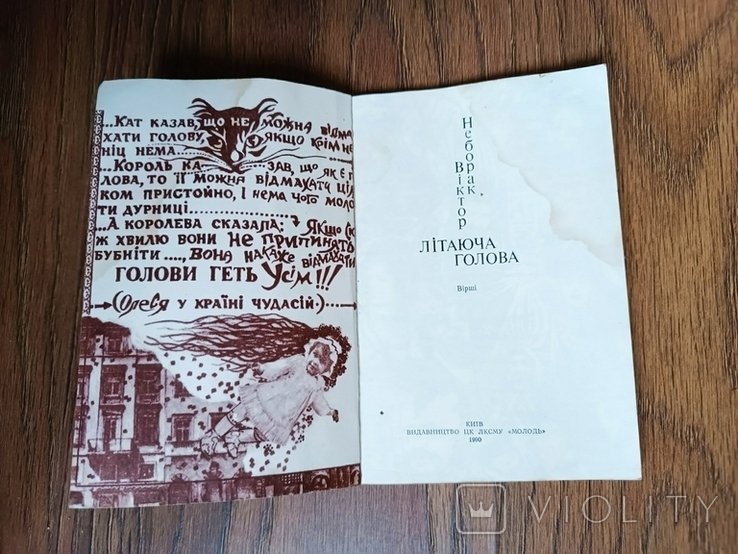 ...Кат казав, що не можна відма
хати голову, якщо крім не
ніц нема...
...Король ка зав, що як є г
лова, то її можна відмахати ці
ком пристойно, і нема чого моло
ти дурниці...
...А королева сказала: Якщо с
ж хвилю вони не припинять
бубніти ..., вона накаже відмахати
голови геть Усім!!!
(Олеся у країні чудасій.)
Неборак
Віктор
ЛІТАЮЧА
ГОЛОВА
Вірші
КИЇВ
ВИДАВНИЦТВО ЦК ЛКСМУ «МОЛОДЬ»
1990
VIOLITY